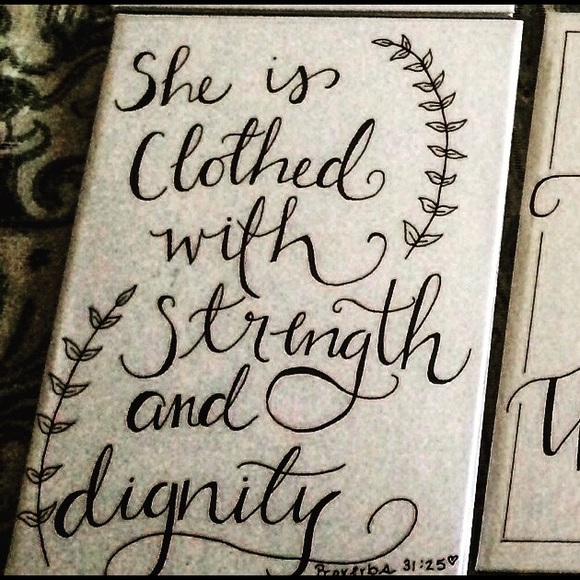 She is
Clothed
with
Strength
and
dignity
Proverbs 31:25♡